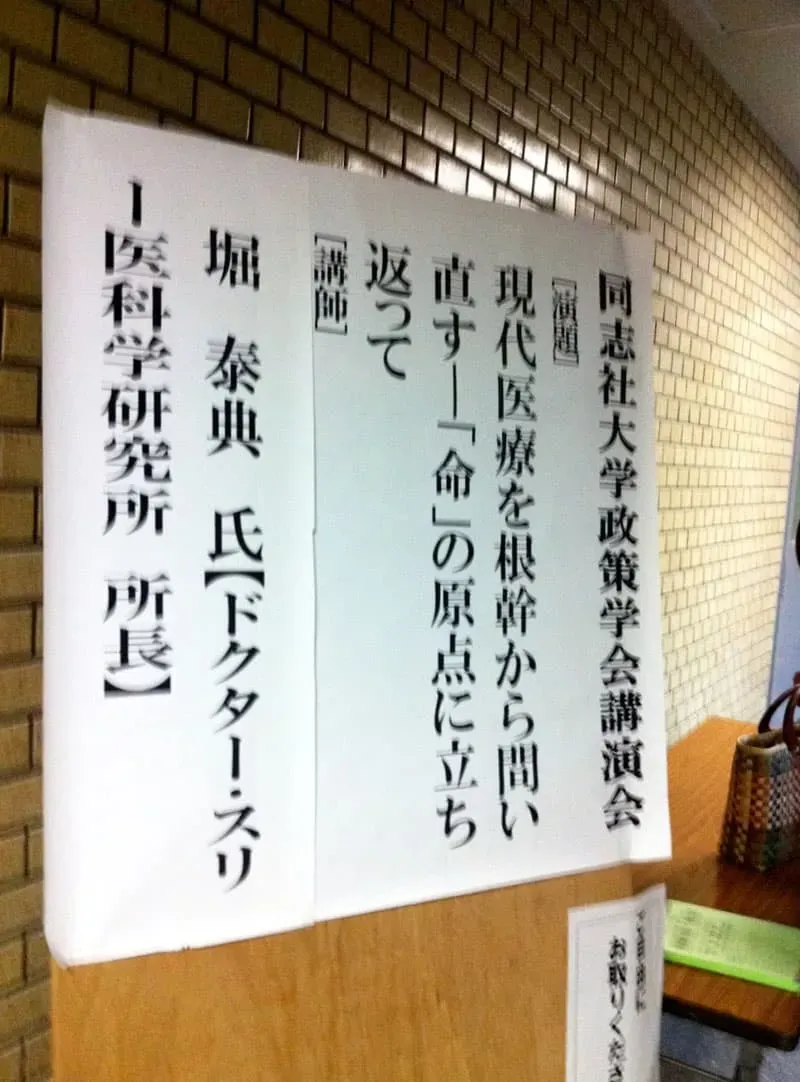 同志社大学政策学会講演会
【演題】
現代医療を根幹から問い
直すー「命」の原点に立ち
返って
【講師】
堀 泰典 氏【ドクター・スリ
ー医科学研究所 所長】
お取りくださ